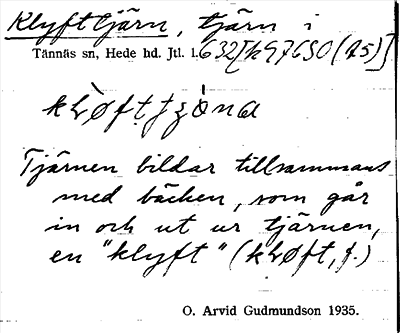 Klyfttjärn, tjärn i
Tännäs sn, Hede hd. Jtl. l. 632[k97630(A5)]
Tjärnen bildar tillsammans
med bäcken, som går
in och ut ur tjärnen,
en "klyft" (
O. Arvid Gudmundson 1935.